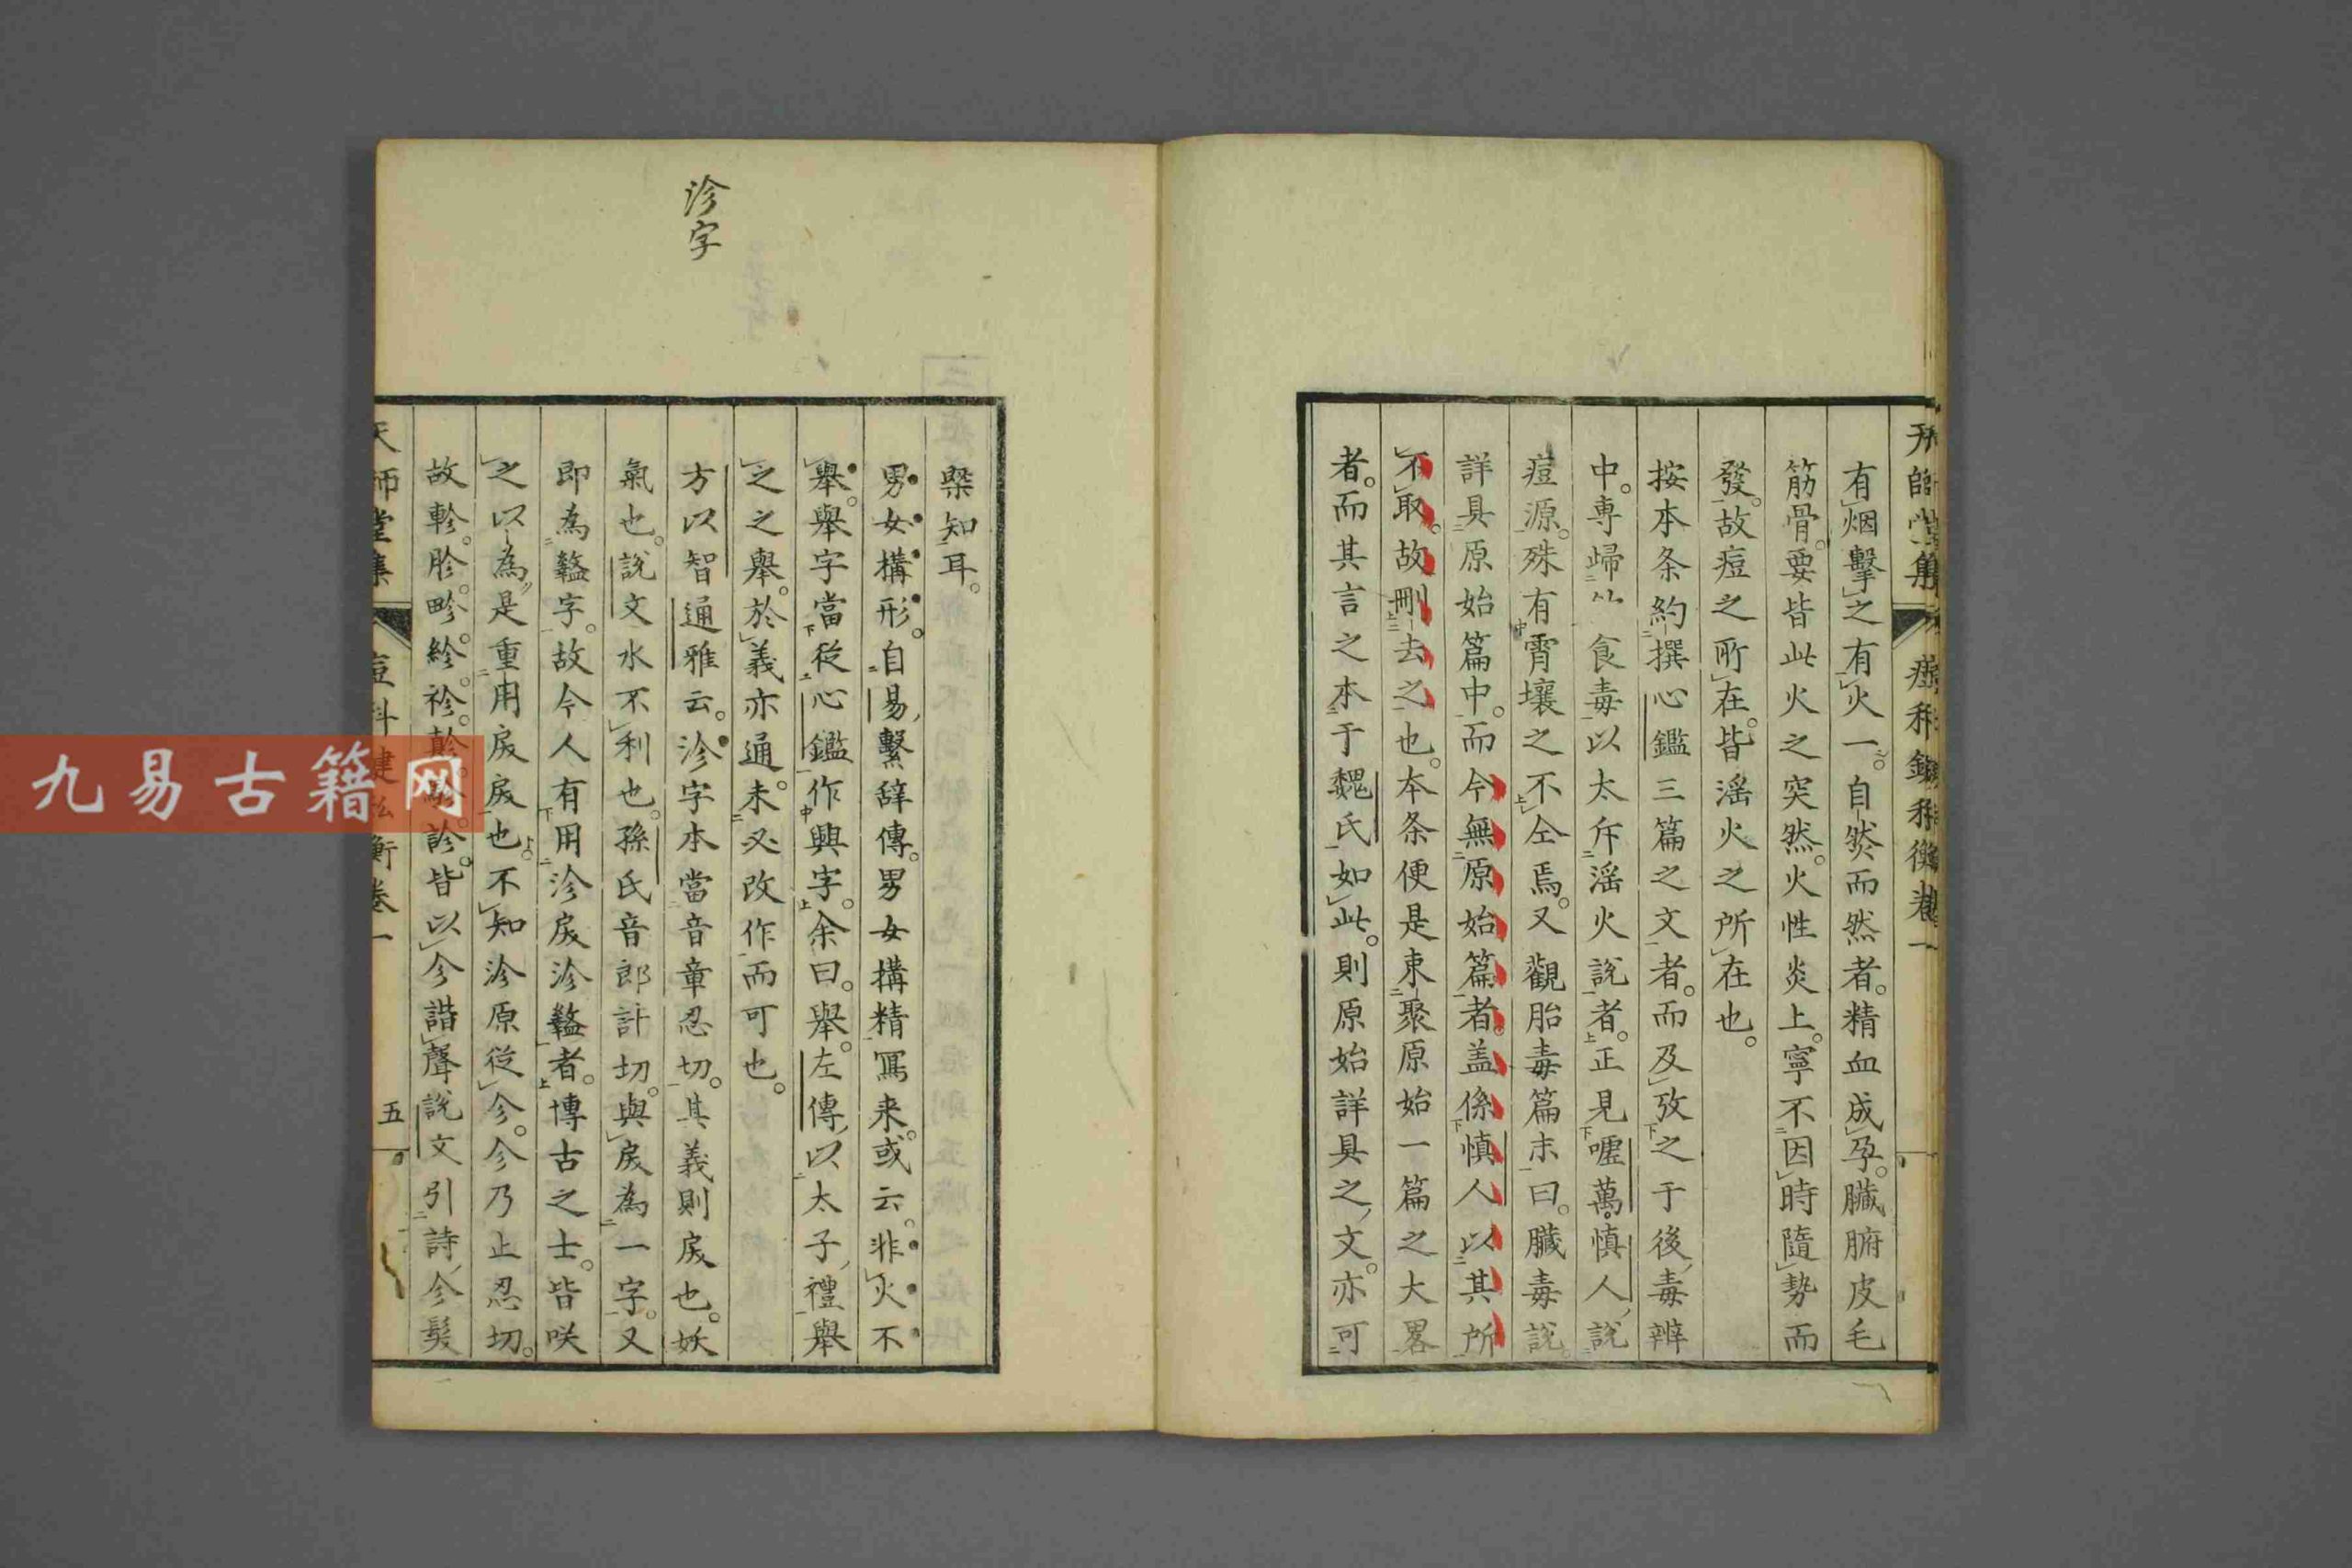 有烟擊之有火一自然而然者精血成孕臟腑皮毛
筋骨要皆此火之突然火性炎上寧不因時隨勢而
發故痘之所在皆滛火之所在也
按本条約撰心鑑三篇之文者而及攷之于後毒辨
中専歸 食毒以太斥滛火說者正見嚦萬慎人說
痘源殊有霄壤之不仝焉又觀胎毒篇末曰臟毒說
詳具原始篇中而今無原始篇者盖係慎人以其所
不取故刪去之也本条便是東聚原始一篇之大畧
者而其言之本于魏氏如此則原始詳具之文亦可
槩知耳
男女構形自易繫辞傳男女搆精冩来或云非火不
舉舉字當從心鑑作興字余曰舉左傳以太子禮舉
之之舉於義亦通未必改作而可也
方以智通雅云沴字本當音章忍切其義則戾也妖
氣也說文水不利也孫氏音郎計切與戾為一字又
即為盭字故今人有用沴戾沴盭者博古之士皆咲
之以為是重用戾戾也不知沴原從㐱㐱乃止忍切
故軫胗畛紾袗 診皆以㐱諧聲說文引詩㐱髮
天師堂集 痘科鍵私衡卷一
五
沴字
九易古籍网